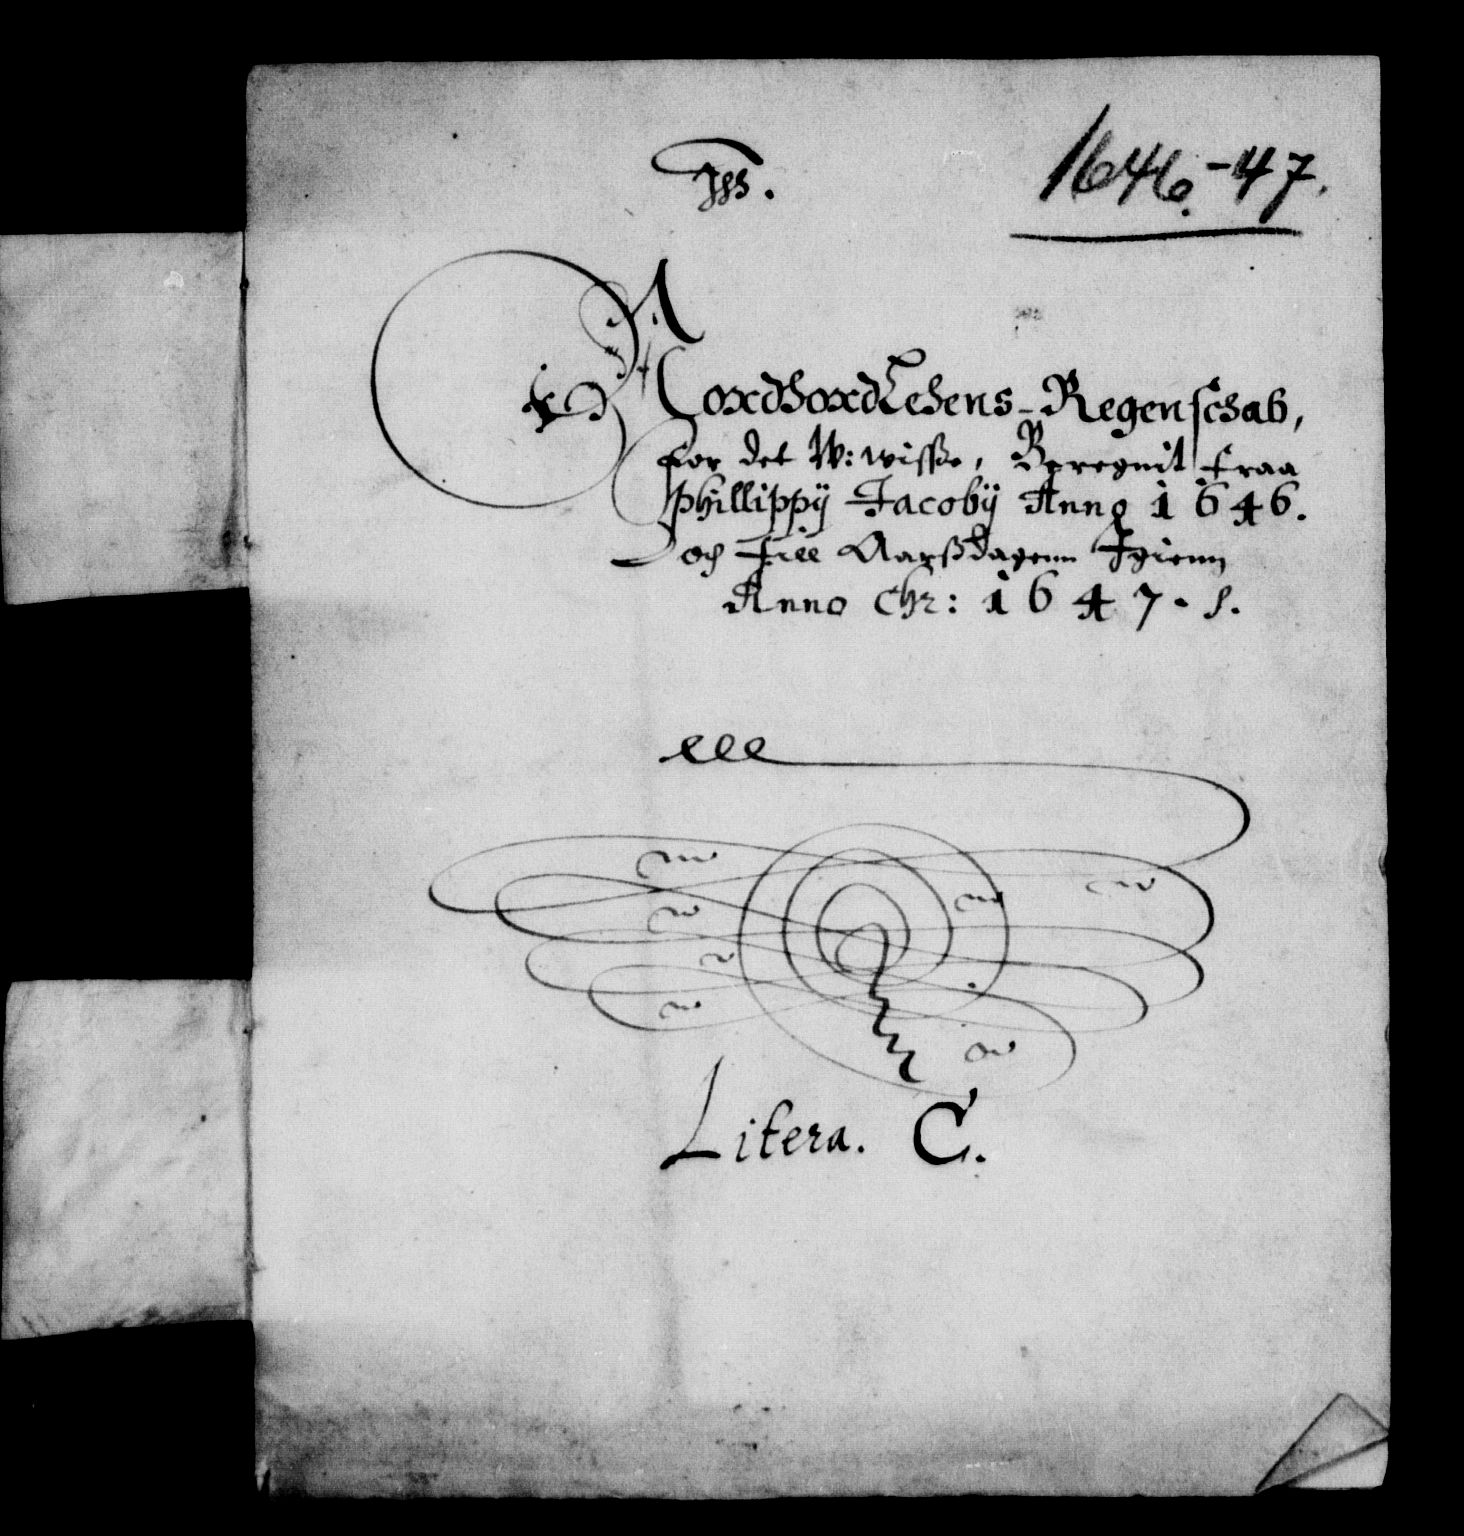 Jhs.
1646.-47.
NordhordLehens-Regenschab,
for det W: wisse, Beregnit fraa
Phillippij Jacobij Anno 1646.
och Till Aarßdagenn Igienn
Anno Chr: 1647.
Litera. C.